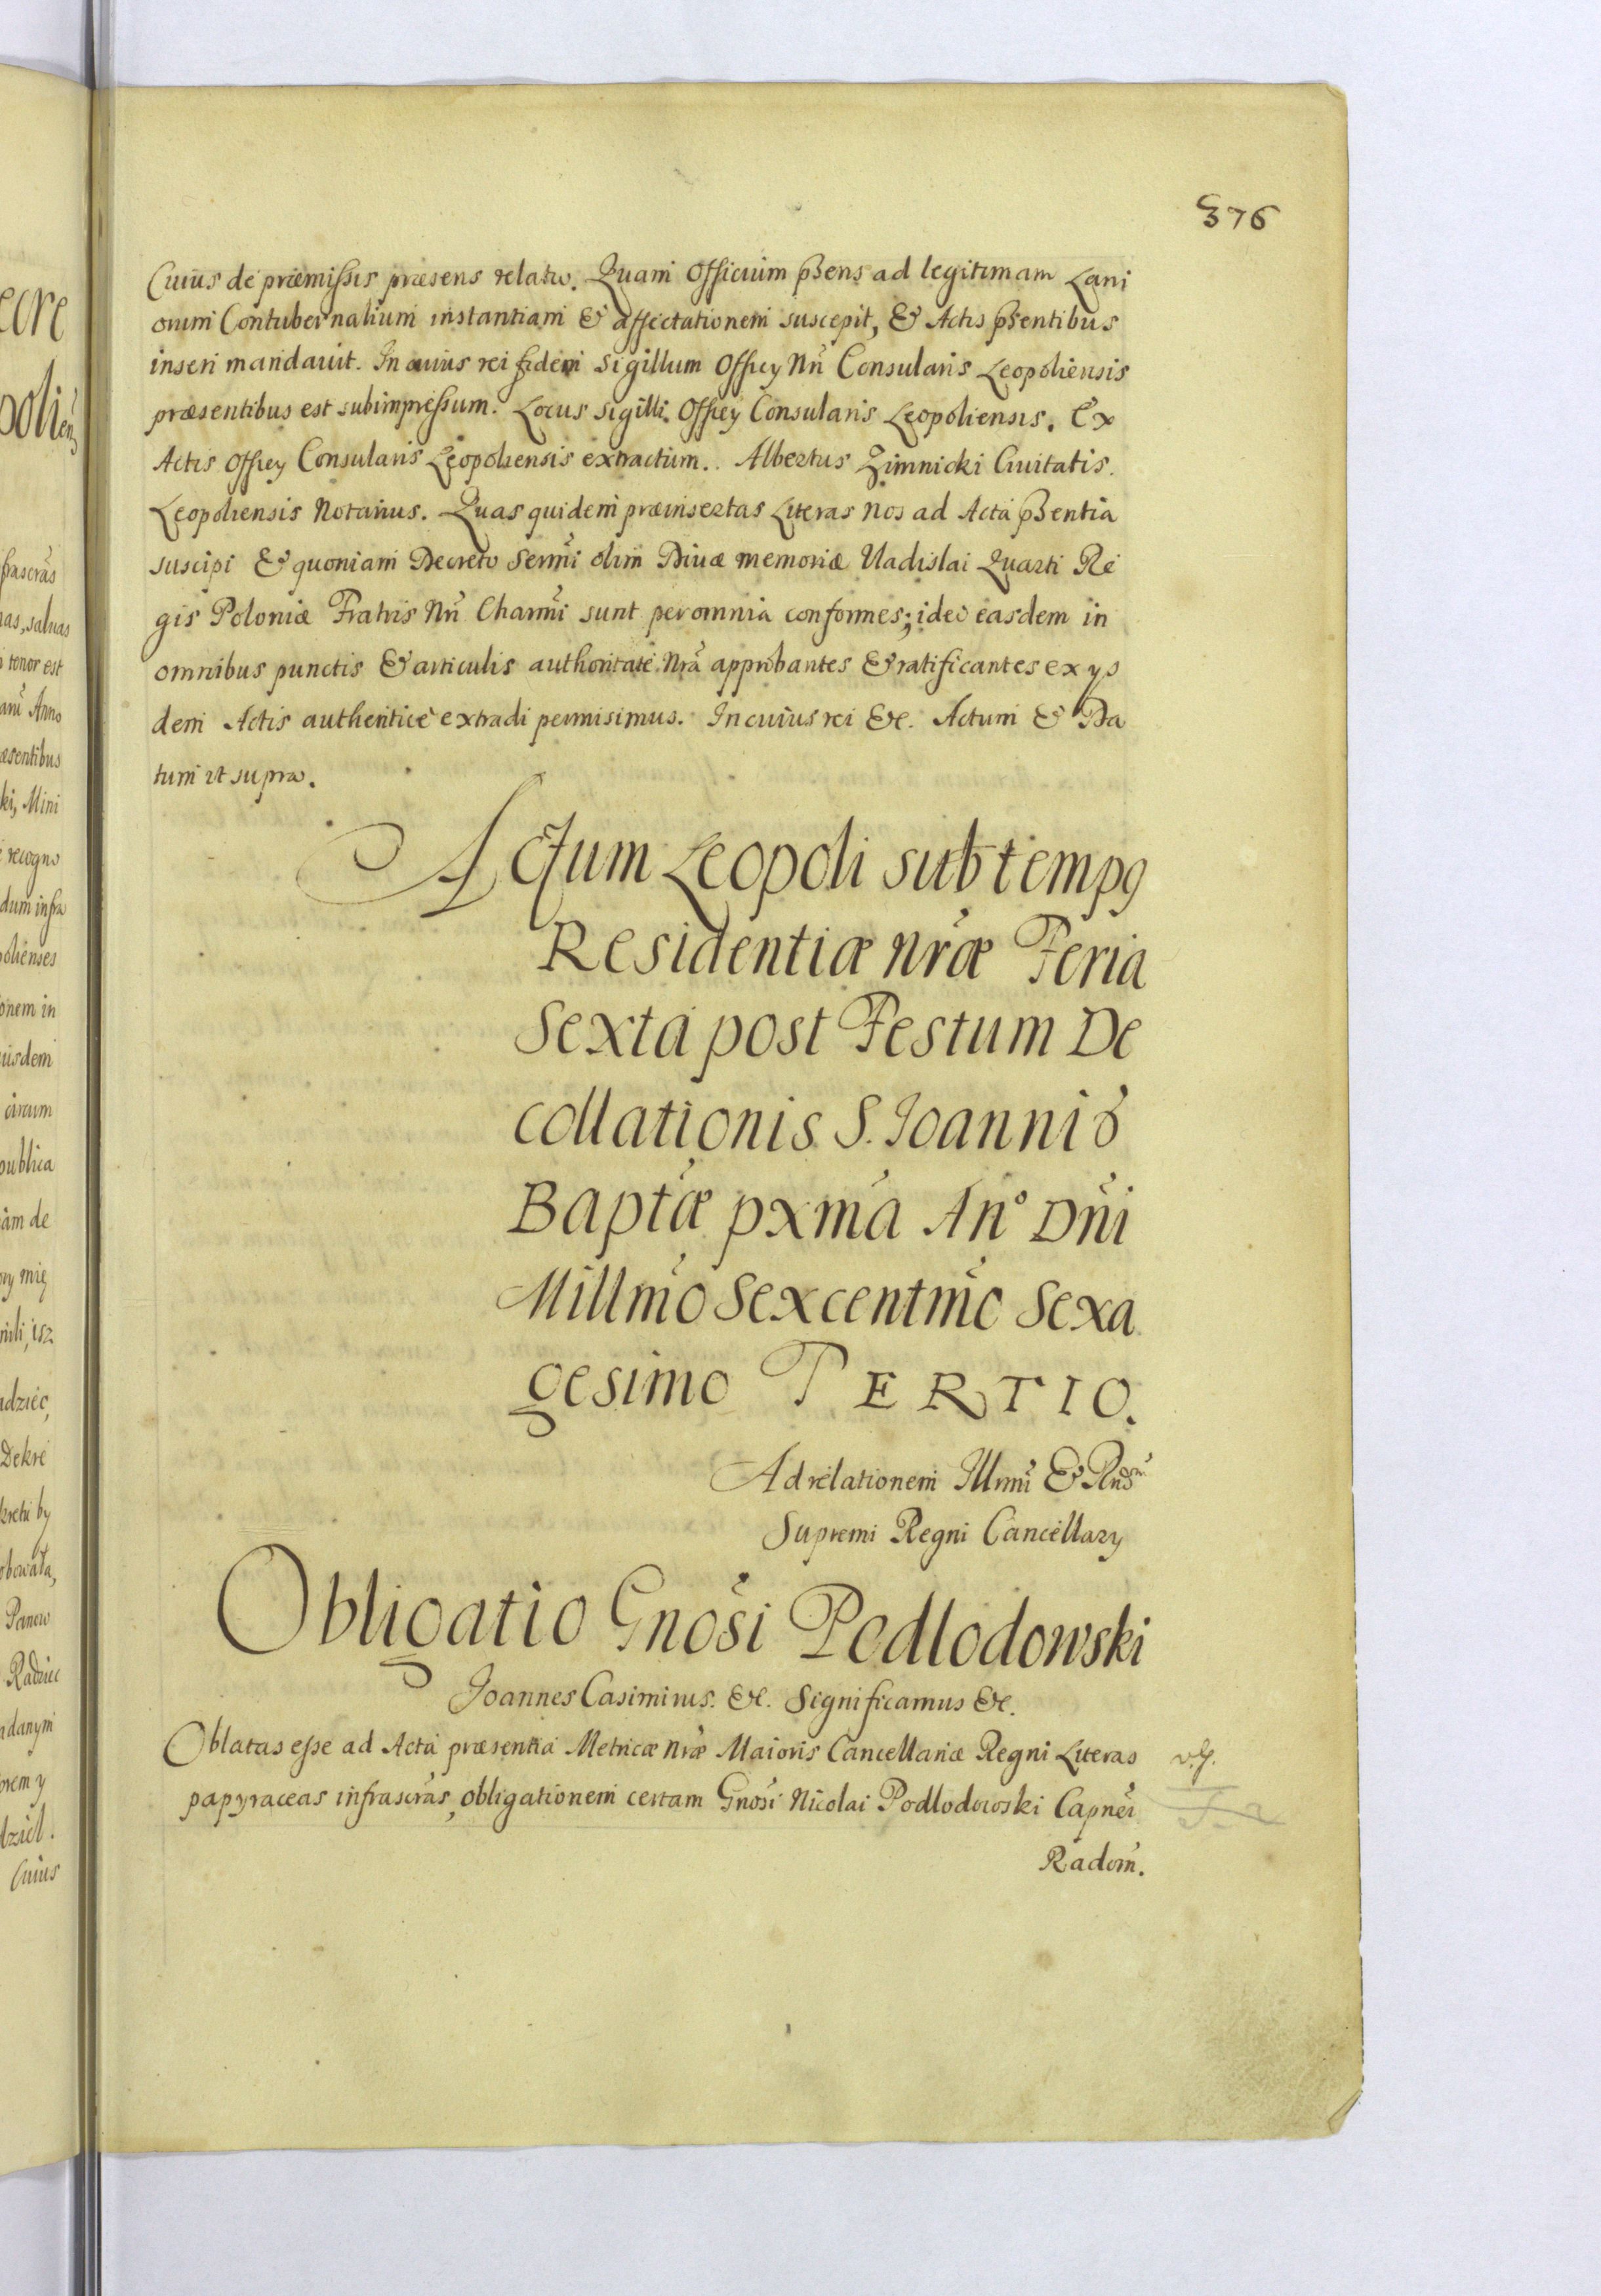 376
Cuius de præmissis præsens relatio. Quam Officium pñsens ad legitimam Lani
onum Contubernalium instantiam & affectationem suscepit, & Actis pñsentibus
inseri mandavit. In cuius rei fidem sigillum Officy Nri̇̃ Consularis Leopoliensis
præsentibus est subimpressum. Locus sigilli. Officy Consularis Leopoliensis. Ex
Actis Officy Consularis Leopoliensis extractum. Albertus Zimnicki Civitatis
Leopoliensis Notarius. Quas quidem præinsertas Literas Nos ad Acta pñsentia
suscipi & quoniam Decreto Sermi olim Divæ memoriæ Vladislai Quarti Re
gis Poloniæ Fratris Nri̇̃ Charmi sunt per omnia conformes; ideo easdem in
omnibus punctis & articulis authoritate Nrã approbantes & ratificantes ex ys
dem Actis authenticè extradi permisimus. In cuius rei &c. Actum & Da
tum ut supra.
Actum Leopoli sub tempg
Residentiæ nræ Feria
Sexta post Festum De
collationis S. Joannis
Baptæ pxma Anº Dñi
Millmo Sexcentmo Sexa
gesimo TERTIO.
Ad relationem Illmi & Rndsm
Supremi Regni Cancellary
Obligatio Gnosi Podlodowski
Joannes Casimirus. &c. Significamus &c.
Oblatas esse ad Acta præsentia Metricæ nræ Maioris Cancellariæ Regni Literas
papyraceas infrascrãs, obligationem certam Gnosi Nicolai Podlodowski Capnei
Radom.